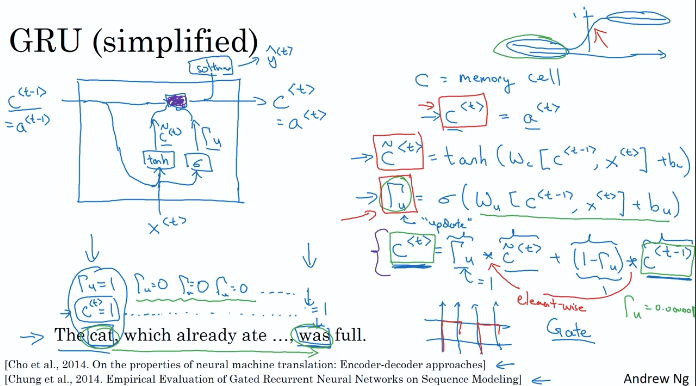 GRU (simplified)
softmax ŷ<t>
c<t-1>
= a<t-1>
c̃<t> Γu
tanh σ
x<t>
c<t>
= a<t>
C = memory cell
c<t> = a<t>
c̃<t> = tanh (Wc [c<t-1>, x<t>] + bc)
Γu = σ (Wu [c<t-1>, x<t>] + bu)
"update"
c<t> = Γu * c̃<t> + (1-Γu) * c<t-1>
= 1
element-wise
Gate
Γu = 1 Γu=0 Γu=0 Γu=0 ......
c<t> = 1 ...... = 1
The cat, which already ate ..., was full.
[Cho et al., 2014. On the properties of neural machine translation: Encoder-decoder approaches]
[Chung et al., 2014. Empirical Evaluation of Gated Recurrent Neural Networks on Sequence Modeling]
Andrew Ng